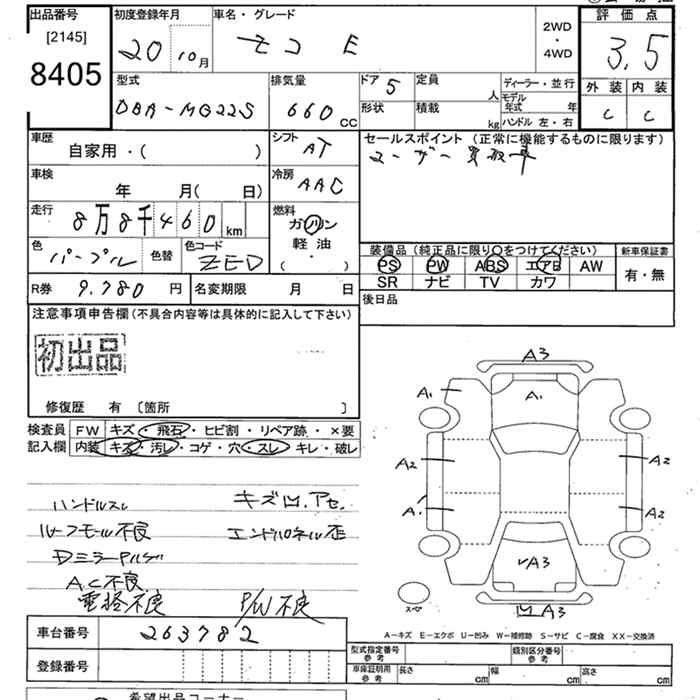 出品番号 初度登録年月 車名・グレード 評価点
[2145]
8405
20 10月 モコ E 2WD・4WD 3.5
型式 排気量 ドア 5 定員 人 ディーラー・並行 外装 内装
DBA-MG22S 660CC 形状 積載 kg モデル年式 年 ハンドル 左・右 C C
車歴 自家用・( ) シフト AT セールスポイント (正常に機能するものに限ります)
ユーザー買取車
車検 年 月( 日) 冷房 AAC
走行 8万8千460km 燃料 ガソリン 軽油・ ( ・ )
色 パープル 色替 色コード ZED 装備品 (純正品に限り○をつけてください) 新車保証書
PS PW ABS エアB AW 有・無
SR ナビ TV カワ
R券 9.780円 名変期限 月 日 後日品
注意事項申告欄 (不具合内容等は具体的に記入して下さい)
初出品
修復歴 有 〔箇所 〕
検査員 FW キズ・飛石・ヒビ割・リペア跡・×要
記入欄 内装 キズ・汚レ・コゲ・穴・スレ・キレ・破レ
ハンドルスレ キズ凹.アセ.
ルーフモール不良 エンドパネル歪
Dミラー
A.C不良
電格不良 P/W不良
A3
A1 A1
A2 A2
A1 A2
A3
スペア 凹 A3
A-キズ E-エクボ U-凹み W-補修跡 S-サビ C-腐食 XX-交換済
車台番号 263782
登録番号
型式指定番号 参考 類別区分番号 参考
車庫証明用 参考 長さ cm 幅 cm 高さ cm
希望出品コーナー